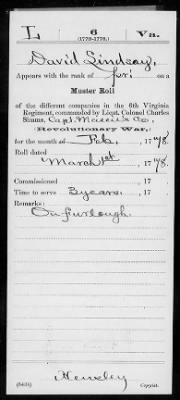 L 6 Va.
(1778-1779.)
David Lindsay,
Appears with the rank of pri: on a
Muster Roll
of the different companies in the 6th Virginia
Regiment, commanded by Lieut. Colonel Charles
Simms, Capt. Co.,
(Revolutionary War,)
for the month of Feb, , 1778.
Roll dated
March 1st , 1778.
Commissioned , 17
Time to serve 3 years. , 17
Remarks:
On furlough.
Copyist.